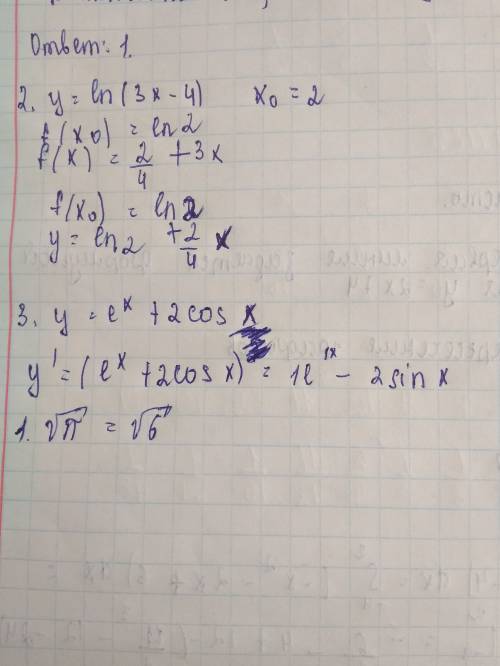 Ответ: 1.
2. y = ln(3x - 4) x₀ = 2
f(x₀) = ln2
f(x) = 2/4 + 3x
f(x₀) = ln2
y = ln2 + 2/4 x
3. y = eˣ + 2cos x
y' = (eˣ + 2cos x)' = 1e¹ˣ - 2sin x
1. √π = √6